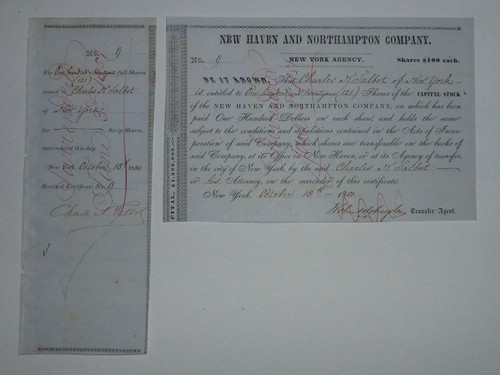 No. 9
For One hundred full Shares
issued to Charles N. Talbot
of New York
Scrip Shares,
surrendered this day.
New York October 18th
Received Certificate No. 9
Charles N. Talbot
NEW HAVEN AND NORTHAMPTON COMPANY.
No. 9 NEW YORK AGENCY. Shares $100 each.
BE IT KNOWN, That Charles N. Talbot of New York
is entitled to One hundred and twenty one (121) Shares of the CAPITAL STOCK
of the NEW HAVEN AND NORTHAMPTON COMPANY, on which has been
paid One Hundred Dollars on each share, and holds the same
subject to the conditions and stipulations contained in the Acts of Incor-
poration of said Company, which shares are transferable on the books of
said Company, at its Office in New Haven, or at its Agency of transfer,
in the city of New York, by the said Charles N. Talbot
or his Attorney, on the surrender of this certificate.
New York, October 18th
Transfer Agent.